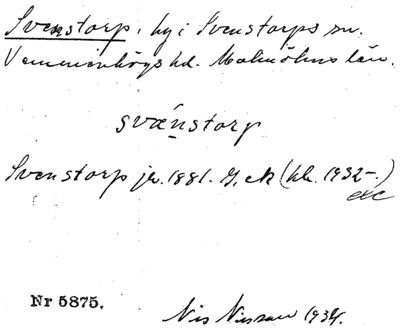 Svenstorp, by i Svenstorps sn.
Vemmenhögs hd. Malmöhus län.
svǽnstorp
Svenstorp jr. 1881. G. ek (kb. 1932-.)
exc
Nr 5875.
Nis Nissen 1934.